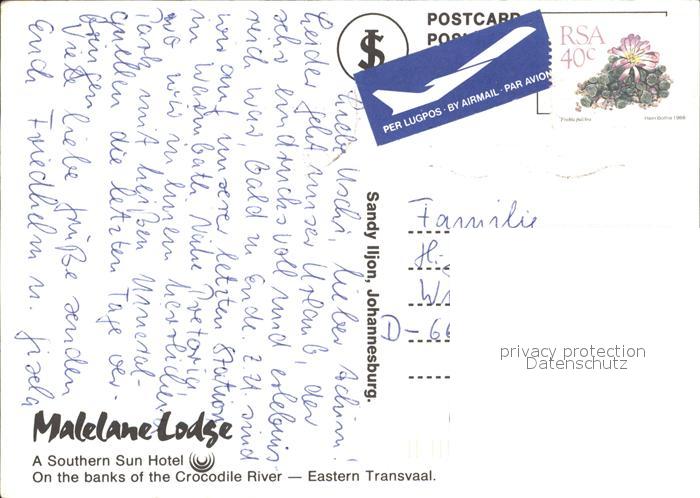 POSTCARD
RSA
40c
PER LUGPOS · BY AIRMAIL · PAR AVION
Frithia pulchra
Hein Botha 1988
Liebe Uschi, lieber Achim!
Leider geht unser Urlaub, der
sehr eindrucksvoll und erlebnis-
reich war, bald zu Ende. Z.Zt. sind
wir auf unserer letzten Station
in Warmbath, Nähe Pretoria,
wo wir in einem herrlichen
Park mit heißen Mineral-
quellen die letzten Tage ver-
bringen.
Viele liebe Grüße senden
Euch Friedhelm u. Gisela
Sandy Iljon, Johannesburg.
Familie
D-66
privacy protection
Datenschutz
Malelane Lodge
A Southern Sun Hotel
On the banks of the Crocodile River — Eastern Transvaal.